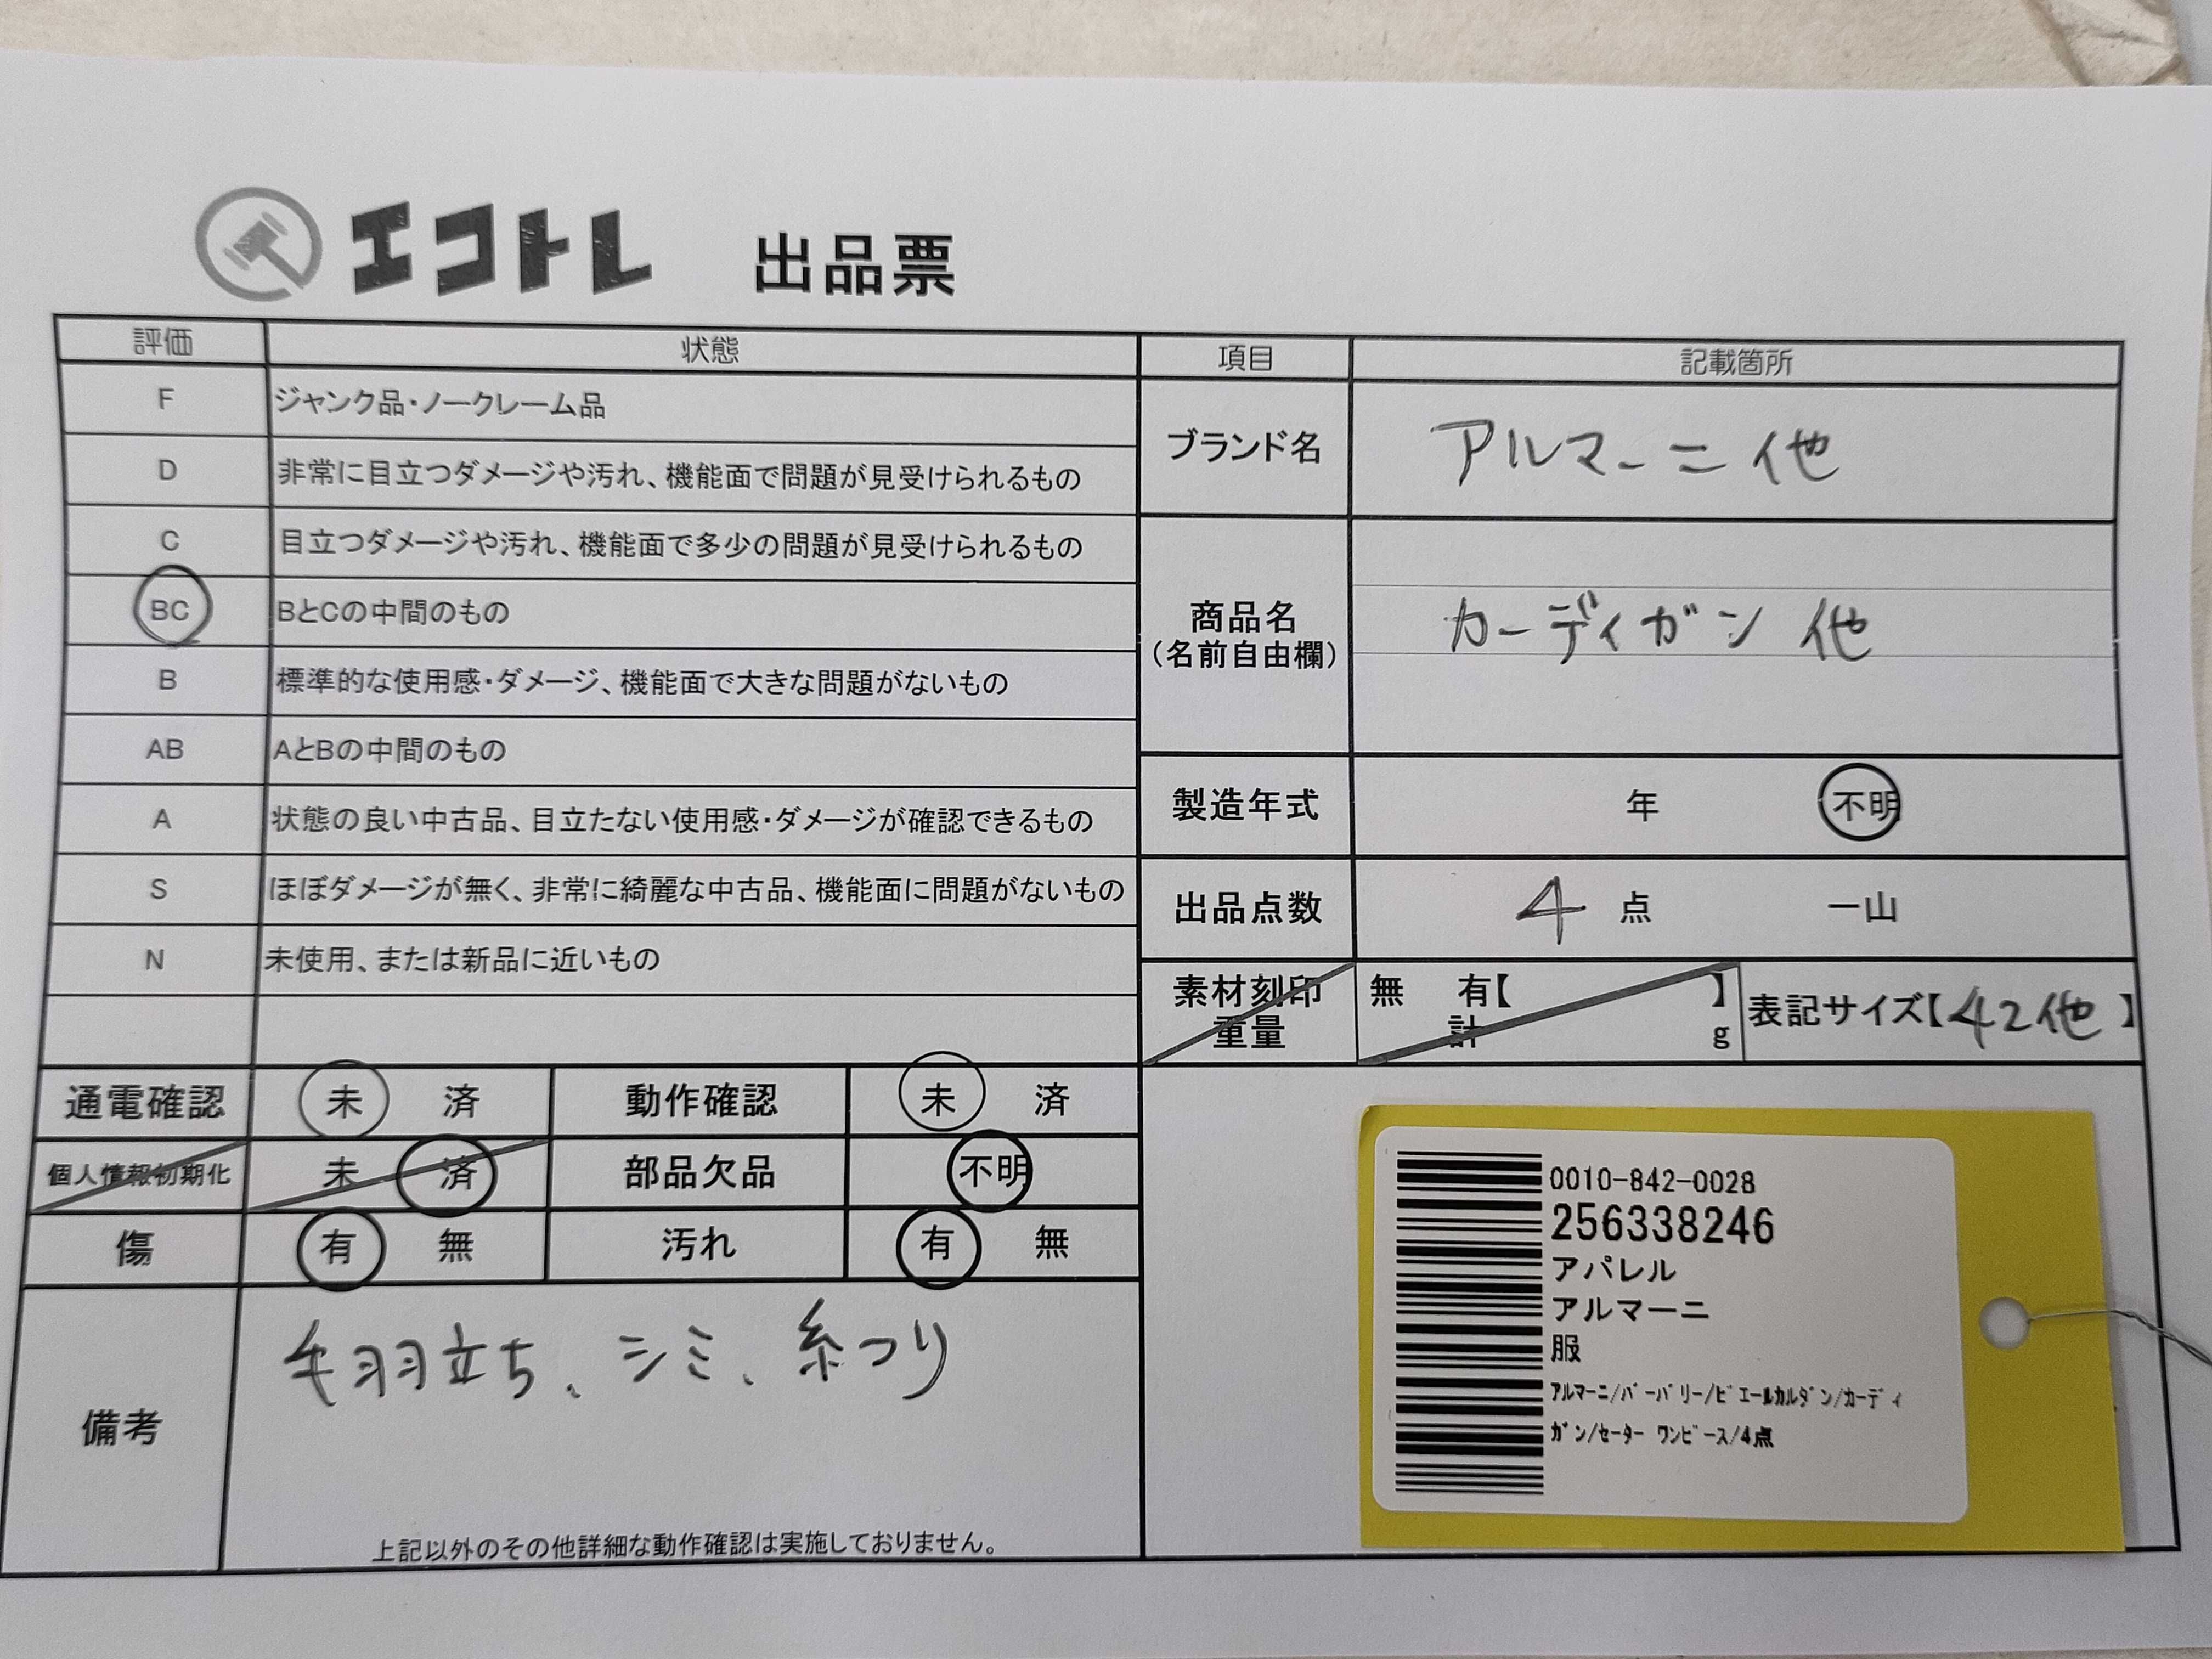 エコトレ 出品票
評価 状態 項目 記載箇所
F ジャンク品・ノークレーム品
D 非常に目立つダメージや汚れ、機能面で問題が見受けられるもの
C 目立つダメージや汚れ、機能面で多少の問題が見受けられるもの
BC BとCの中間のもの
B 標準的な使用感・ダメージ、機能面で大きな問題がないもの
AB AとBの中間のもの
A 状態の良い中古品、目立たない使用感・ダメージが確認できるもの
S ほぼダメージが無く、非常に綺麗な中古品、機能面に問題がないもの
N 未使用、または新品に近いもの
ブランド名 アルマーニ他
商品名
(名前自由欄)
カーディガン 他
製造年式 年 不明
出品点数 4 点 一山
素材刻印 無 有【 】
重量 計 g
表記サイズ【42他】
通電確認 未 済 動作確認 未 済
個人情報初期化 未 済 部品欠品 不明
傷 有 無 汚れ 有 無
備考
毛羽立ち、シミ、糸つり
上記以外のその他詳細な動作確認は実施しておりません。
0010-842-0028
256338246
アパレル
アルマーニ
服
ｱﾙﾏｰﾆ/ﾊﾞｰﾊﾞﾘｰ/ﾋﾟｴｰﾙｶﾙﾀﾞﾝ/ｶｰﾃﾞｨ
ｶﾞﾝ/ｾｰﾀｰ ﾜﾝﾋﾟｰｽ/4点